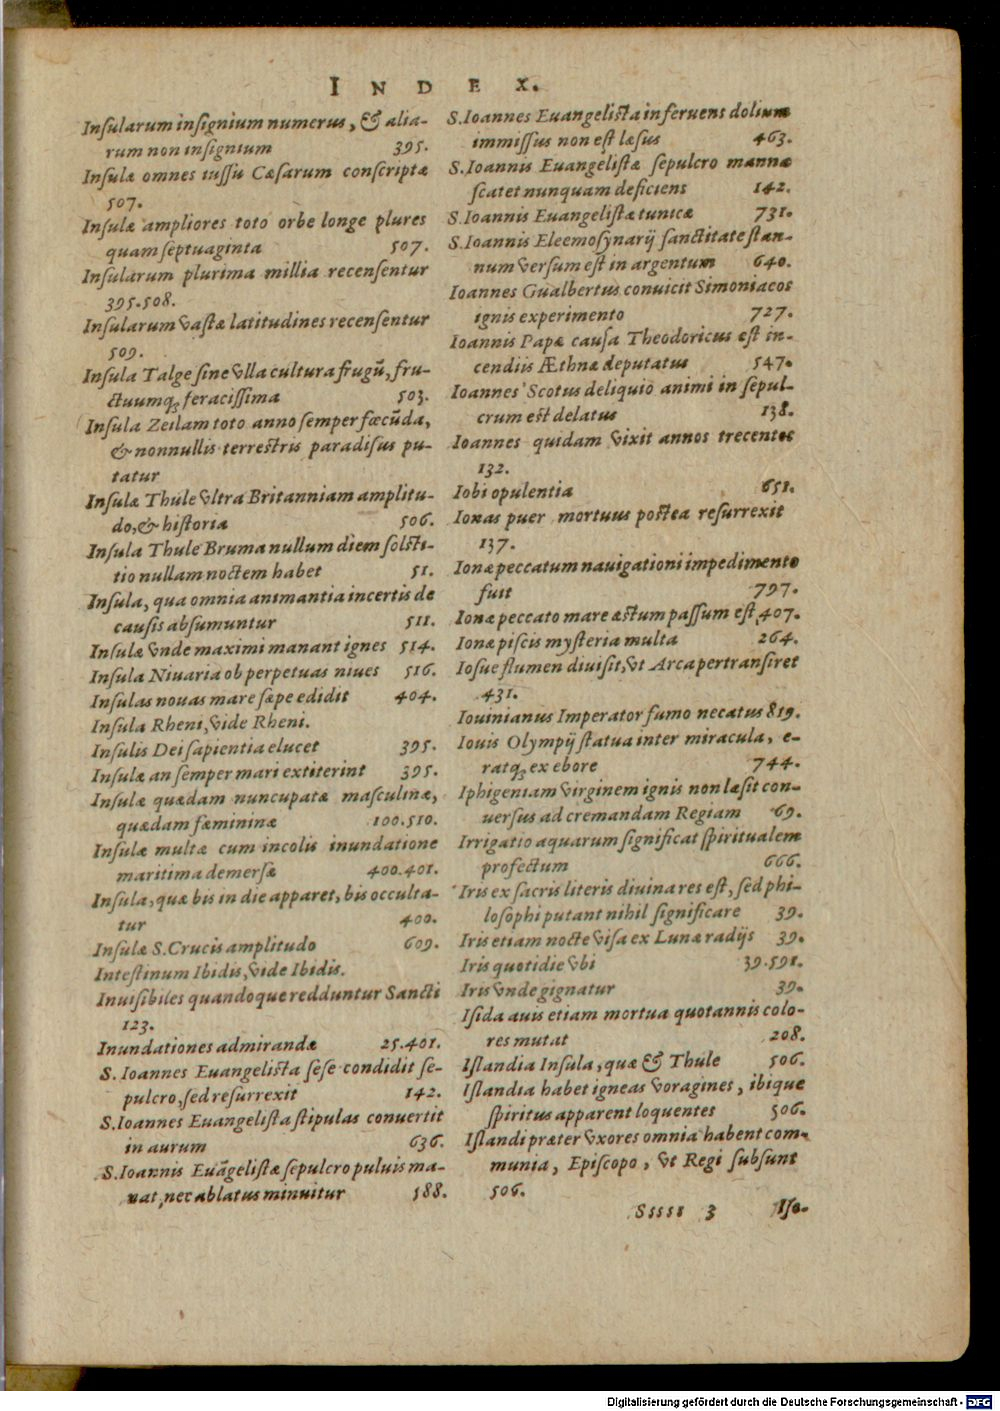 INDEX.
Inſularum inſignium numerus, & alia-
rum non inſignium 395.
Inſulæ omnes iuſſu Cæſarum conſcriptæ
507.
Inſulæ ampliores toto orbe longe plures
quam ſeptuaginta 507.
Inſularum plurima millia recenſentur
395.508.
Inſularum vaſtæ latitudines recenſentur
509.
Inſula Talge ſine vlla cultura frugũ, fru-
ctuumqꝫ feraciſſima 503.
Inſula Zeilam toto anno ſemper fœcũda,
& nonnullis terreſtris paradiſus pu-
tatur
Inſulæ Thule vltra Britanniam amplitu-
do, & hiſtoria 506.
Inſula Thule Bruma nullum diem ſolſti-
tio nullam noctem habet 51.
Inſula, qua omnia animantia incertis de
cauſis abſumuntur 511.
Inſulæ vnde maximi manant ignes 514.
Inſula Niuaria ob perpetuas niues 516.
Inſulas nouas mare ſæpe edidit 404.
Inſula Rheni, vide Rheni.
Inſulis Dei ſapientia elucet 395.
Inſulæ an ſemper mari extiterint 395.
Inſulæ quædam nuncupatæ maſculinæ,
quædam fæmininæ 100.510.
Inſulæ multæ cum incolis inundatione
maritima demerſæ 400.401.
Inſula, quæ bis in die apparet, bis occulta-
tur 400.
Inſulæ S. Crucis amplitudo 609.
Inteſtinum Ibidis, vide Ibidis.
Inuiſibiles quandoque redduntur Sancti
123.
Inundationes admirandæ 25.401.
S. Ioannes Euangeliſta ſeſe condidit ſe-
pulcro, ſed reſurrexit 142.
S. Ioannes Euangeliſta ſtipulas conuertit
in aurum 636.
S. Ioannis Euãgeliſtæ ſepulcro puluis ma-
nat, nec ablatus minuitur 588.
S. Ioannes Euangeliſta in feruens dolium
immiſſus non eſt læſus 463.
S. Ioannis Euangeliſtæ ſepulcro manna
ſcatet nunquam deficiens 142.
S. Ioannis Euangeliſtæ tunica 731.
S. Ioannis Eleemoſynarij ſanctitate ſtan-
num verſum eſt in argentum 640.
Ioannes Gualbertus conuicit Simoniacos
ignis experimento 727.
Ioannis Papæ cauſa Theodoricus eſt in-
cendiis Æthnæ deputatus 547.
Ioannes Scotus deliquio animi in ſepul-
crum eſt delatus 138.
Ioannes quidam vixit annos trecentos
132.
Iobi opulentia 651.
Ionas puer mortuus poſtea reſurrexit
137.
Ionæ peccatum nauigationi impedimento
fuit 797.
Ionæ peccato mare æſtum paſſum eſt, 407.
Ionæ piſcis myſteria multa 264.
Ioſue flumen diuiſit, vt Arca pertranſiret
431.
Iouinianus Imperator fumo necatus 819.
Iouis Olympij ſtatua inter miracula, e-
ratqꝫ ex ebore 744.
Iphigeniam virginem ignis non læſit con-
uerſus ad cremandam Regiam 69.
Irrigatio aquarum ſignificat ſpiritualem
profectum 666.
Iris ex ſacris literis diuina res eſt, ſed phi-
loſophi putant nihil ſignificare 39.
Iris etiam nocte viſa ex Lunæ radijs 39.
Iris quotidie vbi 39.591.
Iris vnde gignatur 39.
Iſida auis etiam mortua quotannis colo-
res mutat 208.
Iſlandia Inſula, quæ & Thule 506.
Iſlandia habet igneas voragines, ibique
ſpiritus apparent loquentes 506.
Iſlandi præter vxores omnia habent com-
munia, Epiſcopo, vt Regi ſubſunt
506.
Sssss 3 Iſo-
Digitalisierung gefördert durch die Deutsche Forschungsgemeinschaft - DFG